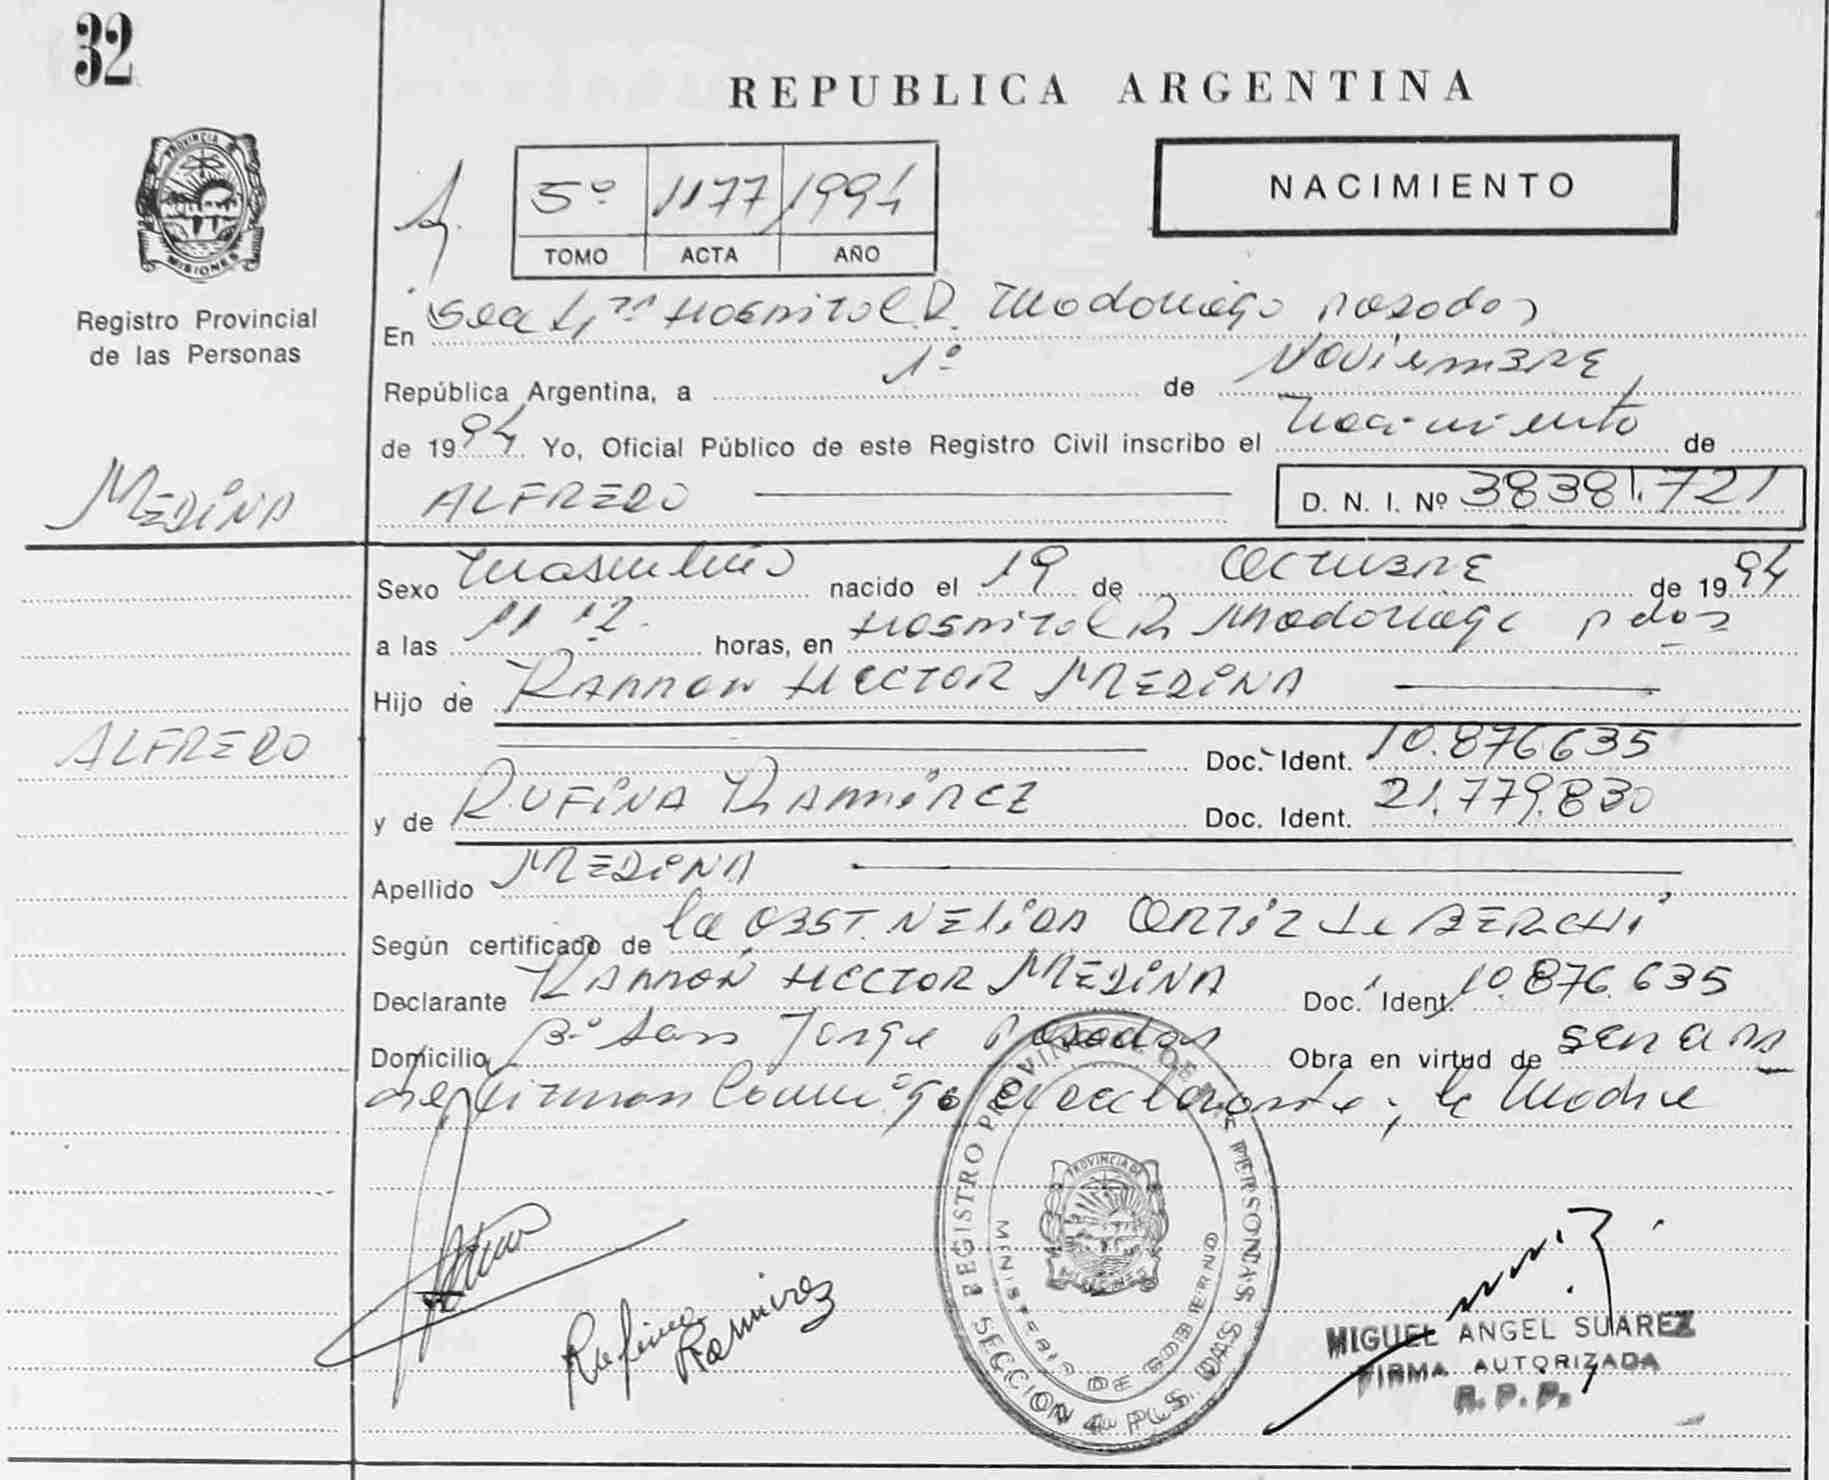 32
REPUBLICA ARGENTINA
PROVINCIA DE
MISIONES
Registro Provincial
de las Personas
5º 1177 1994
TOMO ACTA AÑO
NACIMIENTO
En Secc 4ª Hospital R. Madariaga Posadas
República Argentina, a 1º de Noviembre
de 1994 Yo, Oficial Público de este Registro Civil inscribo el nacimiento de
MEDINA
ALFREDO
D. N. I. Nº 38381.721
Sexo Masculino nacido el 19 de OCTUBRE de 1994
a las 11 12 horas, en Hospital R. Madariaga pdas
Hijo de RAMON HECTOR MEDINA
ALFREDO
Doc. Ident. 10.876.635
y de RUFINA RAMIREZ Doc. Ident. 21.779.830
Apellido MEDINA
Según certificado de la OBST. NELIDA ORTIZ de BERCHI
Declarante RAMON HECTOR MEDINA Doc. Ident. 10.876.635
Domicilio Bº San Jorge Posadas Obra en virtud de
firman conmigo el declarante y la Madre
REGISTRO PROVINCIAL DE LAS PERSONAS
SECCION 4ª PCIAL. PDAS
MINISTERIO DE GOBIERNO
PROVINCIA DE
MISIONES
Rufina
Ramirez
MIGUEL ANGEL SUAREZ
FIRMA AUTORIZADA
R. P. P.